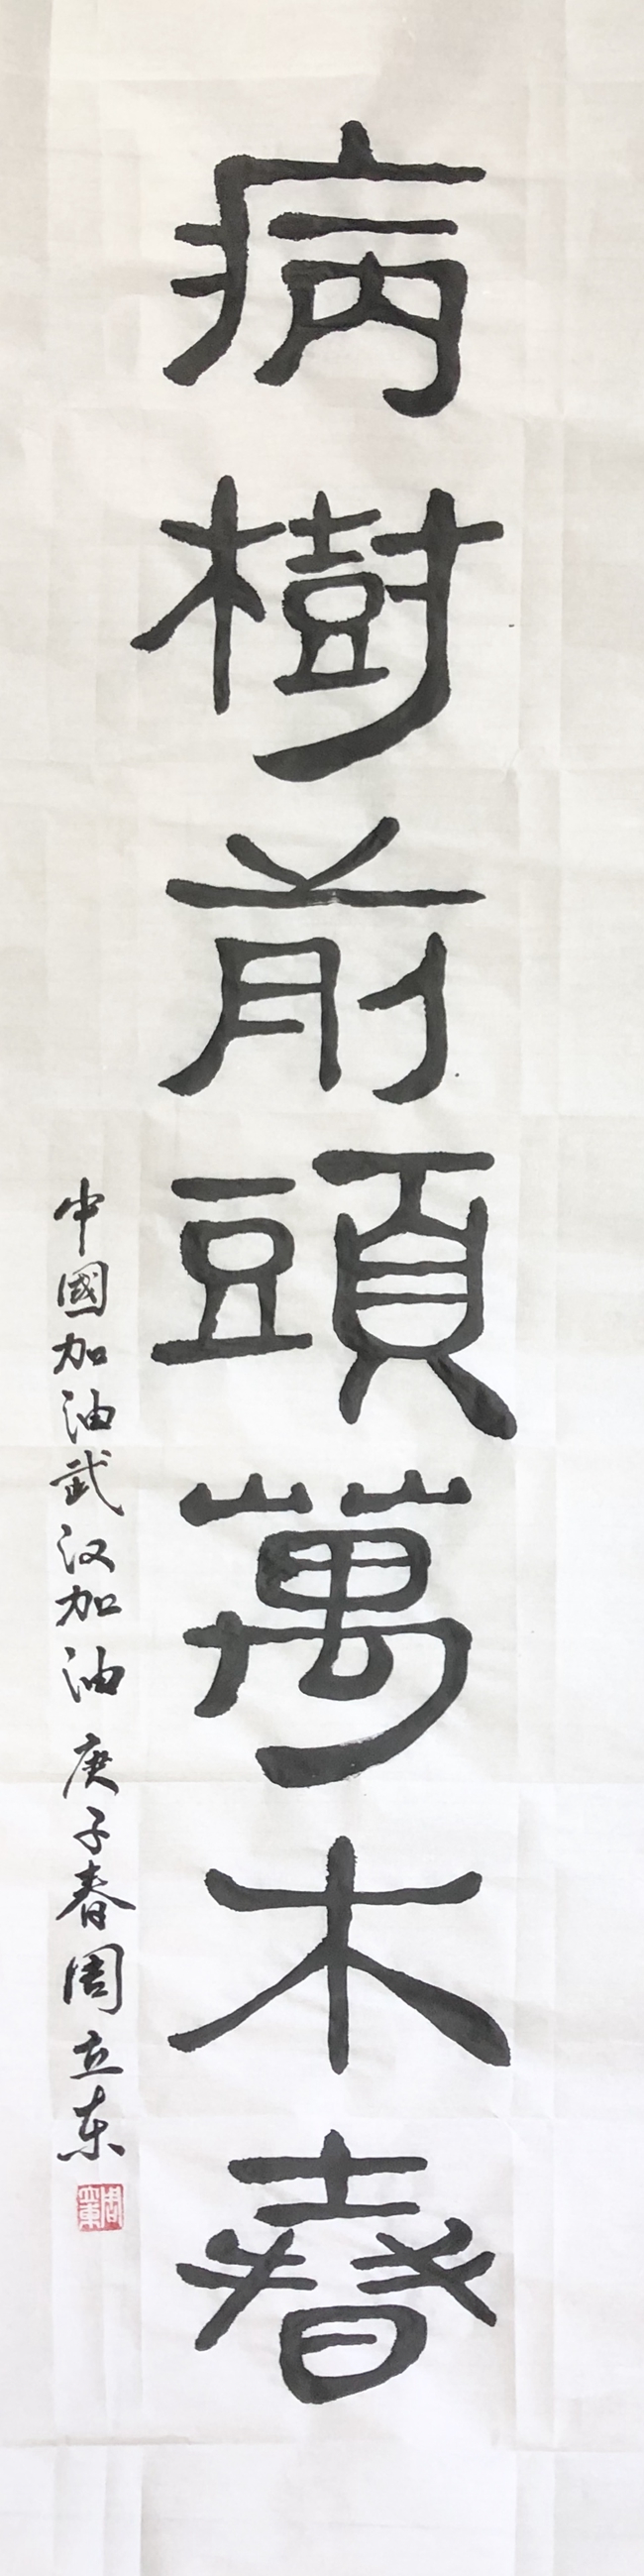 病樹前頭萬木春
中國加油武汉加油 庚子春周立东